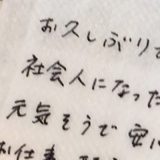 お久しぶりで
社会人になった
元気そうで安
お仕事